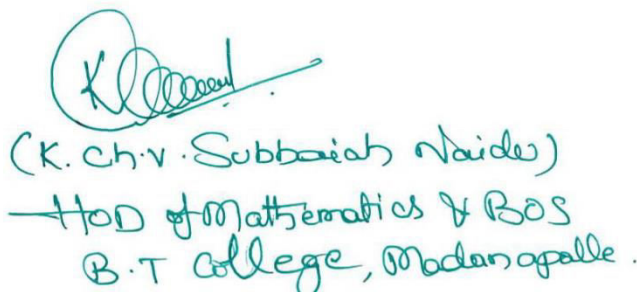 (K. Ch. V. Subbaiah Naidu)
HOD of Mathematics & BOS
B.T College, Madanapalle.